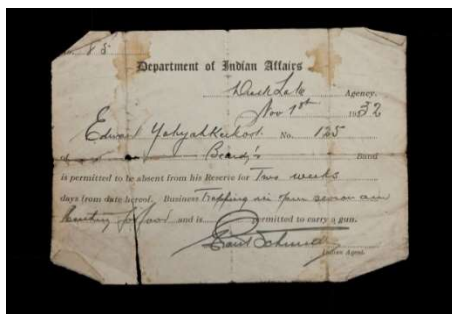 85
Department of Indian Affairs
Duck Lake Agency.
Nov 1st 1932
Edward Yahyahkeekoot No. 125
of Beardy's Band
is permitted to be absent from his Reserve for Two weeks
days from date hereof. Business Trapping in open season and
hunting for food and is permitted to carry a gun.
Schmidt
Indian Agent.